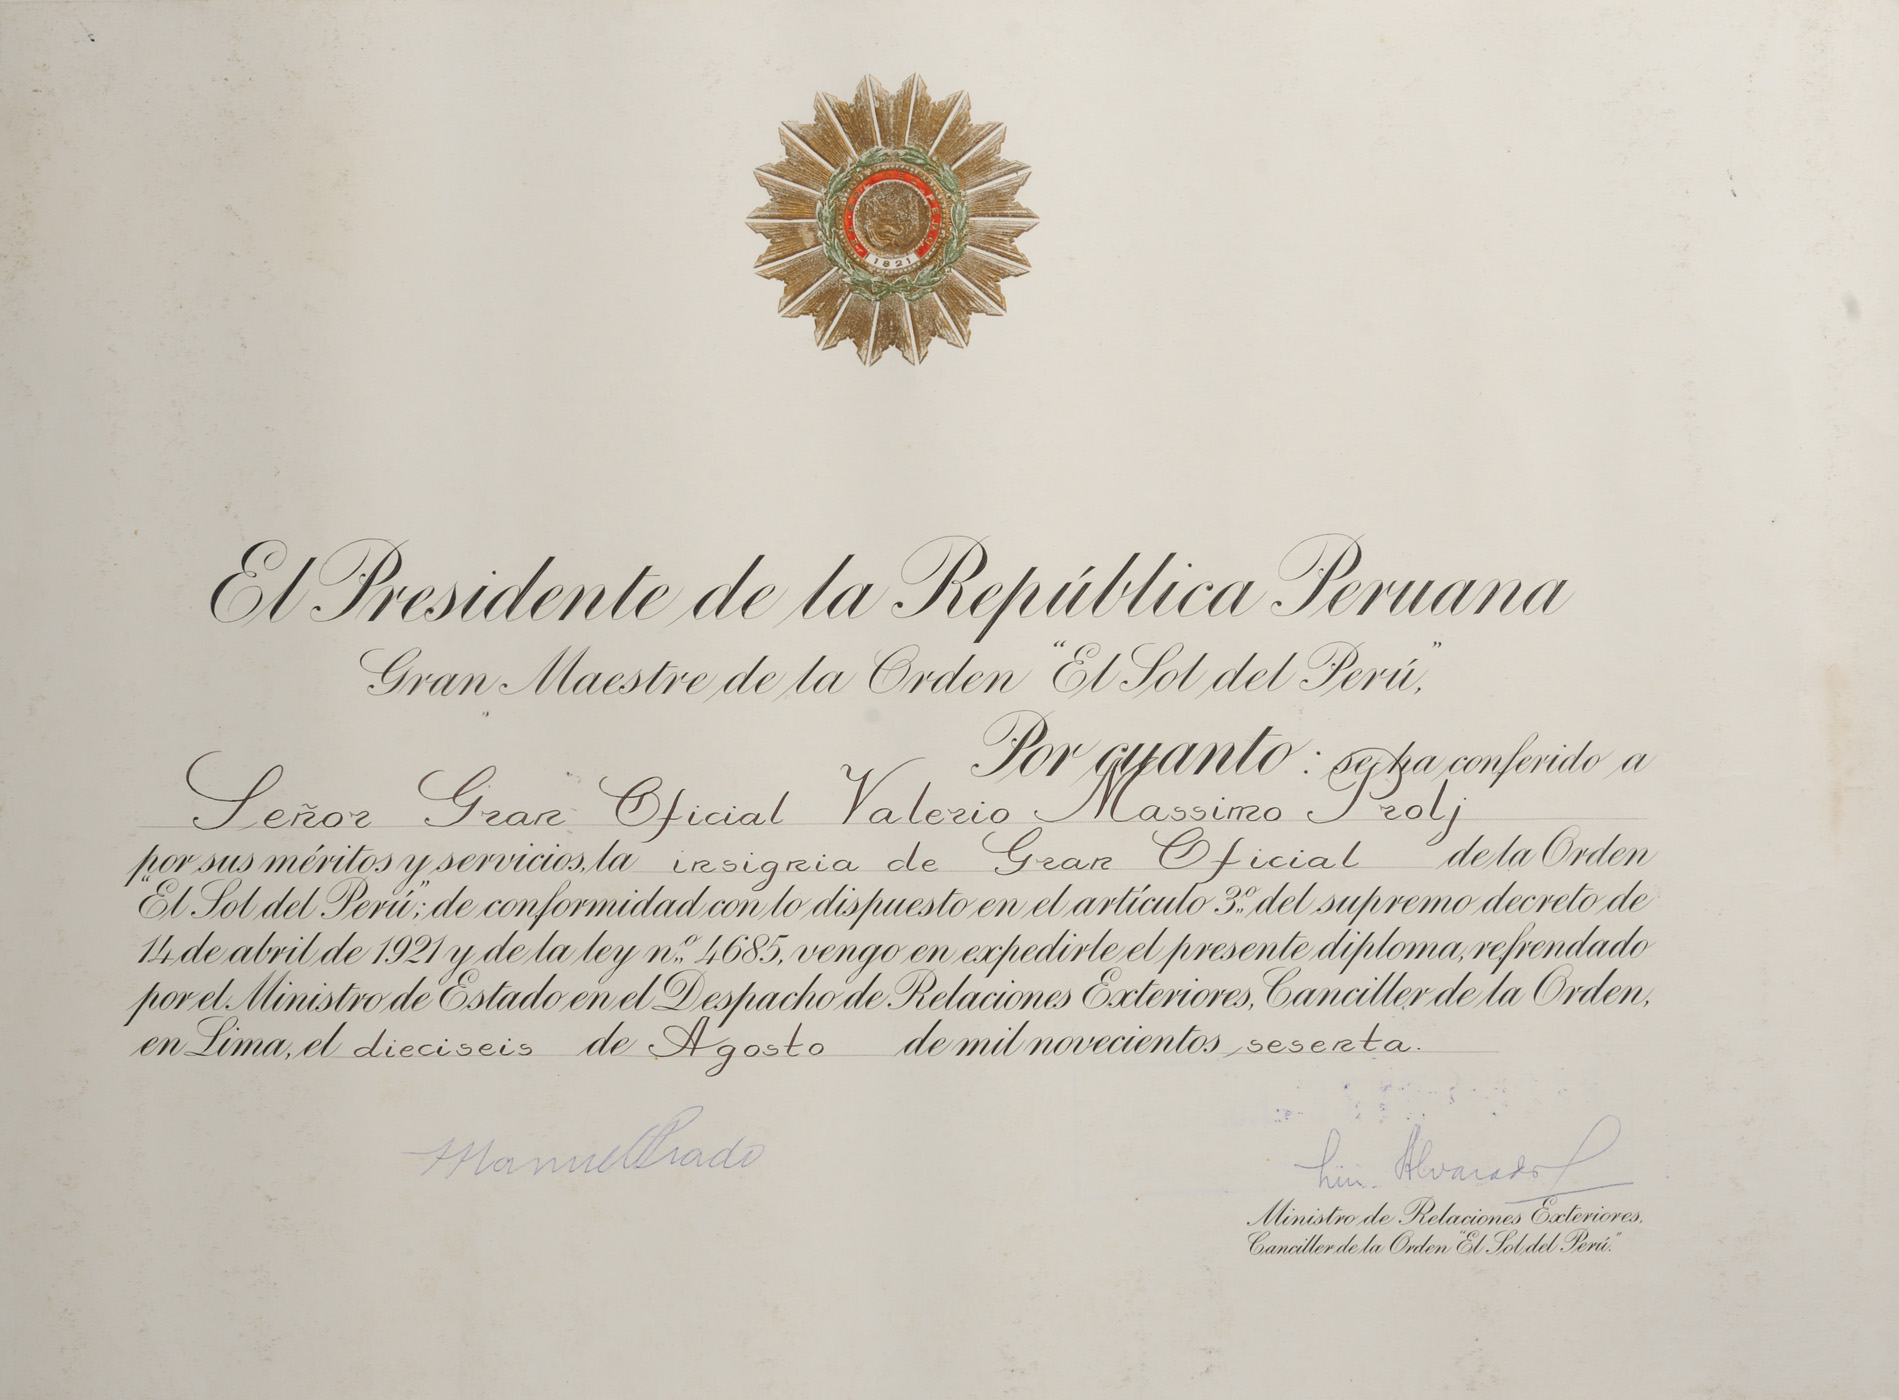 EL SOL DEL PERU
1821
El Presidente de la República Peruana
Gran Maestre de la Orden "El Sol del Perú",
Por cuanto: se ha conferido a
Señor Gran Oficial Valerio Massimo Prolj
por sus méritos y servicios, la insignia de Gran Oficial de la Orden
"El Sol del Perú"; de conformidad con lo dispuesto en el artículo 3º. del supremo decreto de
14 de abril de 1921 y de la ley n.º 4685, vengo en expedirle el presente diploma, refrendado
por el Ministro de Estado en el Despacho de Relaciones Exteriores, Canciller de la Orden,
en Lima, el dieciseis de Agosto de mil novecientos sesenta.
Manuel Prado
Alvarado
Ministro de Relaciones Exteriores,
Canciller de la Orden "El Sol del Perú."